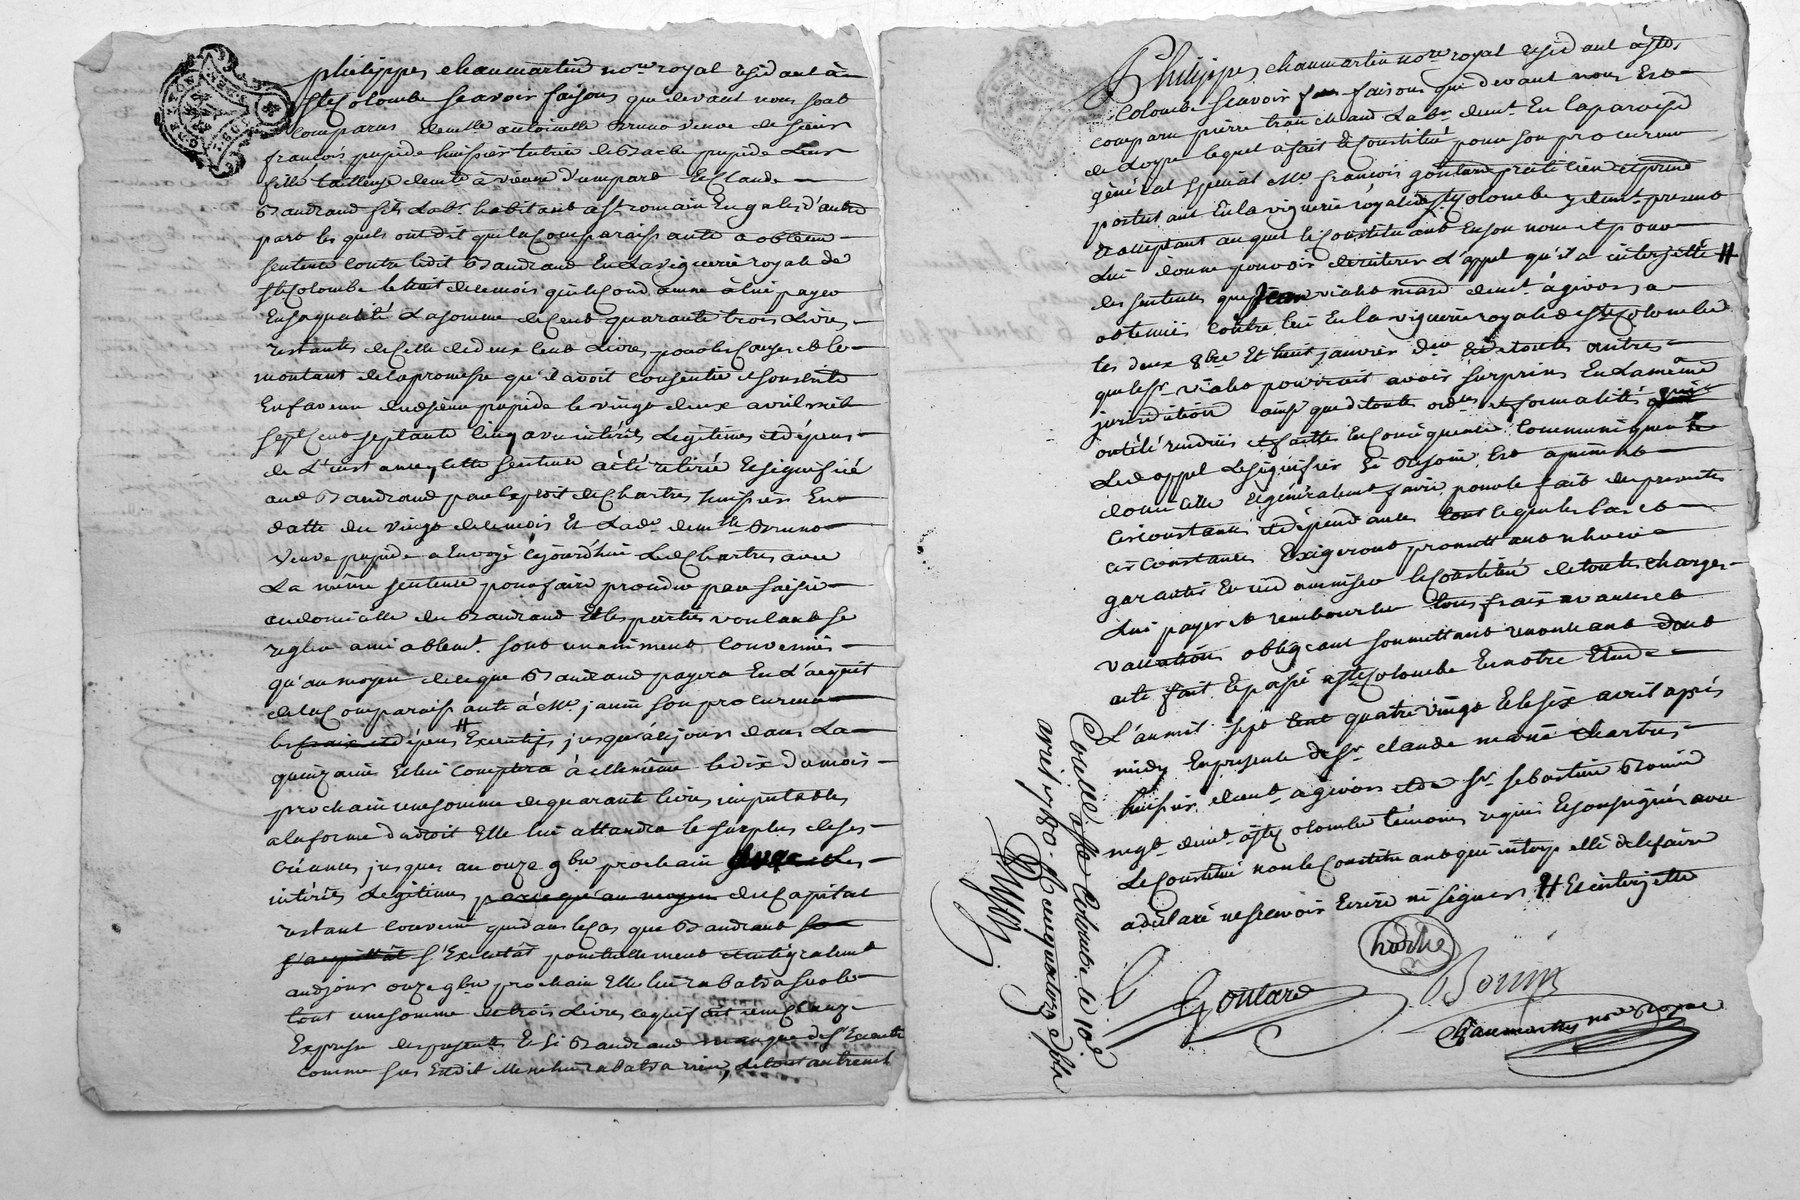 philippes chaumartin nore royal resid ant à
ste Colombe scavoir faisons que devant nous sont
comparus demlle antoinette Bruno veuve de sieur
françois pupide huissier tutrice de pupide Leur
fille tailleuse demte à vienne d'une part Et Claude
Baudrand fils Labr. habitant à st romain En gal d'autre
part les quels ont dit que la Comparaissante a obtenu
sentence Contre ledit Baudrand En La viguerie royale de
ste Colombe le huit de ce mois qui le Condamne à lui payer
En sa qualité La somme de Cent quarante trois Livres
restantes de Celle de deux Cent Livres pour les Causes et le
montant de la promesse qu'il avoit Consentie
En faveur dud sieur pupide le vingt deux avril mil
sept Cent septante Cinq avec intérêts Legitimes et dépens
de L'instance, Cette sentence a été retirée Et signifiée
aud Baudrand par Exploit de Chartres huissier En
datte du vingt de ce mois Et Lade demlle Bruno
veuve pupide a Envoyé Cejourd'hui Led Chartres avec
La même sentence pour faire procéder par saisie
au domicille du Baudrand Et les parties voulant se
regler amiablemt. sont unaniment Convenues
qu'au moyen de ce que Baudrand payera En L'acquit
de la Comparaissante à Me. janin son procureur
les frais et dépens # Executifs jusqu'à ce jour dans La
quinzaine Et lui Comptera à Elle même le dix du mois
prochain une somme de quarante livres imputables
a la forme du droit Elle lui attendra le surplus de ses
Créances jusques au onze 9bre prochain avec Les
intérêts Legitimes parce qu'au moyen du Capital
restant Convenu que dans le Cas que Baudrand
s'acquittât s'Executât ponctuellement et intégralement
aud jour onze 9bre prochain Elle lui rabatra sur le
tout une somme de trois Livres ce qui fait une Clauze
Expresse des presentes Et si Baudrand manque de s'Executer
comme sus Est dit Elle ne lui rabatra rien, Le tout autrement
Philippes chaumartin nore royal resid ant à ste
Colombe scavoir faisons que devant nous Est
comparu pierre tranchand Labr. demt. En la paroisse
de Loyre lequel a fait Et Constitué pour son procureur
général spécial Me. françois goutard praticien Et
postulant En la viguerie royale de ste Colombe y demt. present
Et acceptant auquel le Constituant En son nom Et pour
Lui donne pouvoir de réiterer L'appel qu'il a interjetté #
des sentences que Jean vialet mard demt. à givors a
obtenues Contre lui En la viguerie royale de ste Colombe
les deux 8bre Et huit janvier der Et de toutes autres
que le sr. vialet pourroit avoir surprises En La même
jurisdiction ainsi que de toutes ordces et formalités qui
ont été rendues et faites En Conséquence Communiquer
Led appel Le signifier si Besoin Est
domicille Et généralement faire pour le fait des presentes
circonstances et dépendances tout ce que les Cas et
circonstances Exigeront promettant relever
garantir Et indamniser le Constitué de toutes charges
Lui payer et rembourser tous frais avances et
vaccations obligeant soumettant renonçant dont
acte fait Et passé à ste Colombe En notre Etude
L'an mil sept Cent quatre vingt Et le six avril après
midy En presence de sr. claude marie chartres
huissier demt. à givors et de sr. sebastien Bonin
negt. demt. à ste Colombe témoins requis Et soussignés avec
Le Constitué non le Constituant qui interpellé de le faire
a déclaré ne scavoir Ecrire ni signer # Et interjette
Goutard
Bonin
Chaumartin nore royal
Controllé à ste Colombe le 10e
avril 1780. Reçu quatorze sols